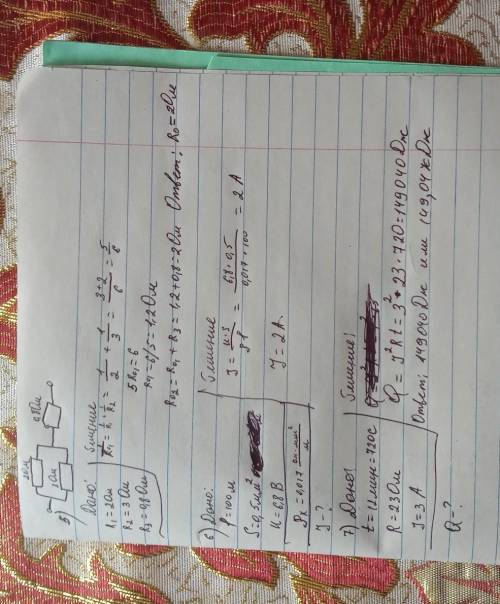 2 Ом
5) 3 Ом 0,8 Ом
Дано:
R₁=2 Ом
R₂=3 Ом
R₃=0,8 Ом
Решение
1/R₀₁ = 1/R₁ + 1/R₂ = 1/2 + 1/3 = 3+2/6 = 5/6
5R₀₁=6
R₀₁=6/5=1,2 Ом
R₀₂=R₀₁+R₃=1,2+0,8=2 Ом Ответ: R₀=2 Ом
6) Дано:
l=100 м
S=0,5 мм²
U=6,8 В
ρx=0,017 Ом·мм²/м
J=?
Решение
J = U·S/ρl = 6,8·0,5/0,017·100 = 2 А
J=2 А.
7) Дано:
t=12 мин=720 с
R=23 Ом
J=3 А
Q=?
Решение:
Q=J²Rt=3²·23·720=149040 Дж
Ответ: 149040 Дж или 149,04 кДж